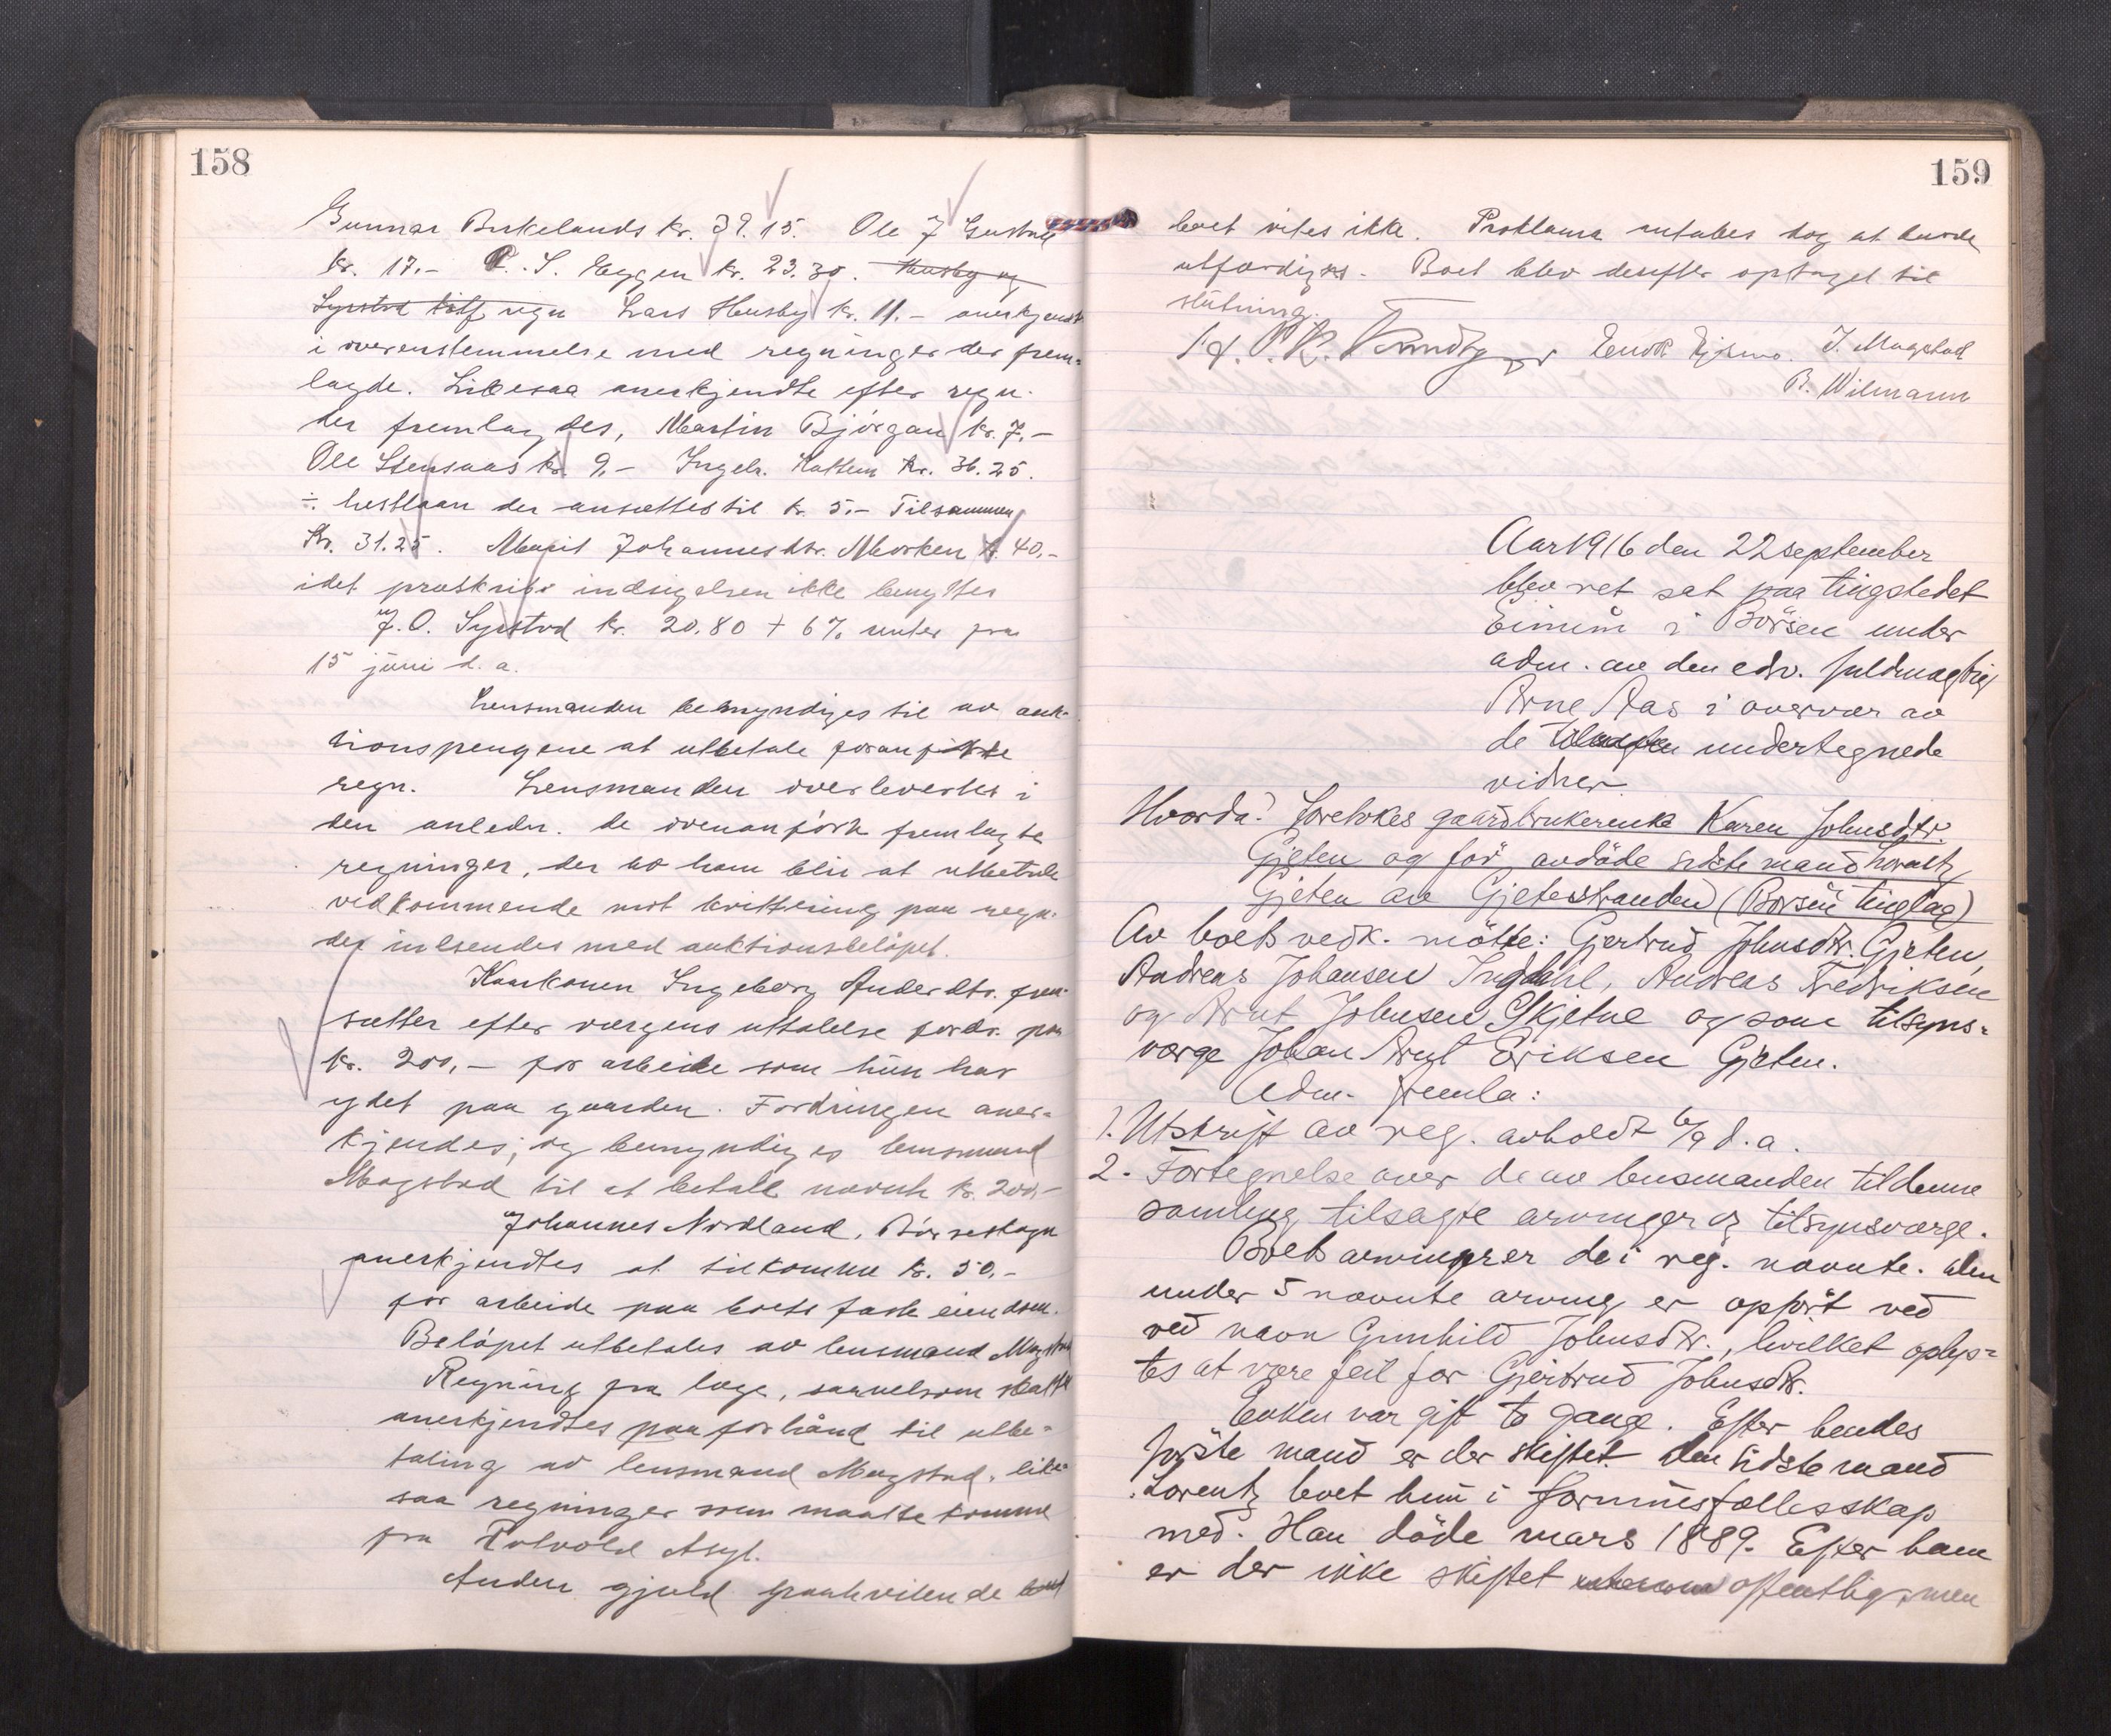 158
Gunnar Birkelands kr. 39.15. Ole J
kr. 17.- P. S. Eggen kr. 23.30. Husby og
Syrstad regn Lars Husby kr. 11.- anerkjendt
i overenstemmelse med regninger der frem-
lagde. Likesaa anerkjendte efter regn.
der fremlagdes, Martin Bjørgan kr. 7.-
Ole Stensaas kr. 9.- Ingebr. Kattem kr. 36.25.
÷ hestlaan der ansættes til kr. 5.- Tilsammen
Kr. 31.25. Marit Johannesdtr. Morken kr. 40.-
idet præskrib. indsigelsen ikke benyttes
J. O. Syrstad kr. 20.80 + 6% renter fra
15 juni d. a.
Lensmanden bemyndiges til av auk-
tionspengene at utbetale foranførte
regn. Lensmanden overlevertes i
den anledn. de ovenanførte fremlagte
regninger, der av ham blir at utbetale
vedkommende mot kvittering paa regn.
der indsendes med auktionsbeløpet.
Kaarkonen Ingeborg Andersdtr. frem-
sætter efter værgens uttalelse fordr. paa
kr. 200,- for arbeide som hun har
ydet paa gaarden. Fordringen aner-
kjendes, og bemyndiges lensmand
Magstad til at betale nævnte kr. 200,-
Johannes Nordland, Børseskogn
anerkjendtes at tilkomme kr. 50.-
for arbeide paa boets faste eiendom.
Beløpet utbetales av lensmand Magstad
Regning fra læge, saavelsom skatter
anerkjendtes paa forhånd til utbe-
taling av lensmand Magstad, like-
saa regninger som maatte komme
fra Rotvold Asyl.
Anden gjæld paahvilende
159
boet vites ikke. Proklama antages dog at burde
utfærdiges. Boet blev derefter optaget til
slutning.
J. Magstad
B. Wilmann
Aar 1916 den 22 september
blev ret sat paa tingstedet
Eimun i Børsen under
adm. av den edsv. fuldmægtig
Arne Aas i overvær av
de undertegnede
vidner
Hvorda: Foretokes gaardbrukerenke Karen Johnsdtr.
Gjeten og før avdøde sidste mand Lorentz
Gjeten av Gjetestranden (Børsen tinglag)
Av boets vedk. møtte: Gjertrud Johnsdtr. Gjeten,
Andreas Johansen Ingdahl, Andreas Fredriksen
og Arnt Johnsen Skjetne og som tilsyns-
værge Johan Arnt Eriksen Gjeten.
Adm. fremla:
1. Utskrift av reg. avholdt 6/9 d. a.
2. Fortegnelse over de av lensmanden til denne
samling tilsagte arvinger og tilsynsværge.
Boets arvinger er de i reg. nævnte. den
under 5 nævnte arving er opført ved
ved navn Gunhild Johnsdtr., hvilket oplys-
tes at være feil for Gjertrud Johnsdtr.
Enken var gift to gange. Efter hendes
første mand er der skiftet. Den sidste mand
Lorentz levet hun i formuesfællesskap
med. Han døde mars 1889. Efter ham
er der ikke skiftet offentlig, men